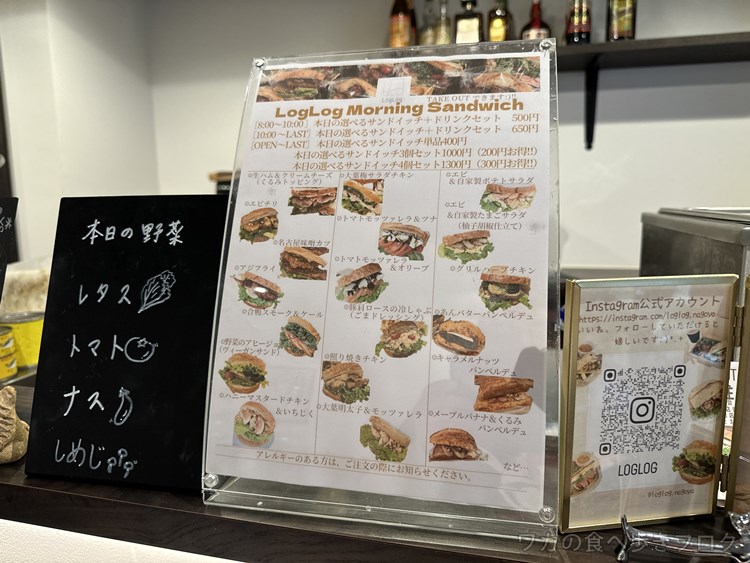 本日の野菜
レタス
トマト
ナス
しめじ
TAKE OUT できます:)!!
LogLog Morning Sandwich
[8:00～10:00] 本日の選べるサンドイッチ＋ドリンクセット 500円
[10:00～LAST] 本日の選べるサンドイッチ＋ドリンクセット 650円
[OPEN～LAST] 本日の選べるサンドイッチ単品400円
本日の選べるサンドイッチ3個セット1000円 (200円お得!!)
本日の選べるサンドイッチ4個セット1300円 (300円お得!!)
生ハム＆クリームチーズ
(くるみトッピング)
エビチリ
名古屋味噌カツ
アジフライ
合鴨スモーク＆ケール
野菜のアヒージョ
(ヴィーガンサンド)
ハニーマスタードチキン
＆いちじく
大葉梅サラダチキン
トマトモッツァレラ＆ツナ
トマトモッツァレラ
＆オリーブ
豚肩ロースの冷しゃぶ
(ごまドレッシング)
照り焼きチキン
大葉明太子＆モッツァレラ
エビ
＆自家製ポテトサラダ
エビ
＆自家製たまごサラダ
(柚子胡椒仕立て)
グリルハーブチキン
あんバターパンベルデュ
キャラメルナッツ
パンベルデュ
メープルバナナ＆くるみ
パンベルデュ
など…
アレルギーのある方は、ご注文の際にお知らせください。
Instagram公式アカウント
https://instagram.com/loglog.nagoya
いいね、フォローしていただけると
嬉しいです
LOGLOG
@loglog.nagoya
ワカの食べ歩きブログ